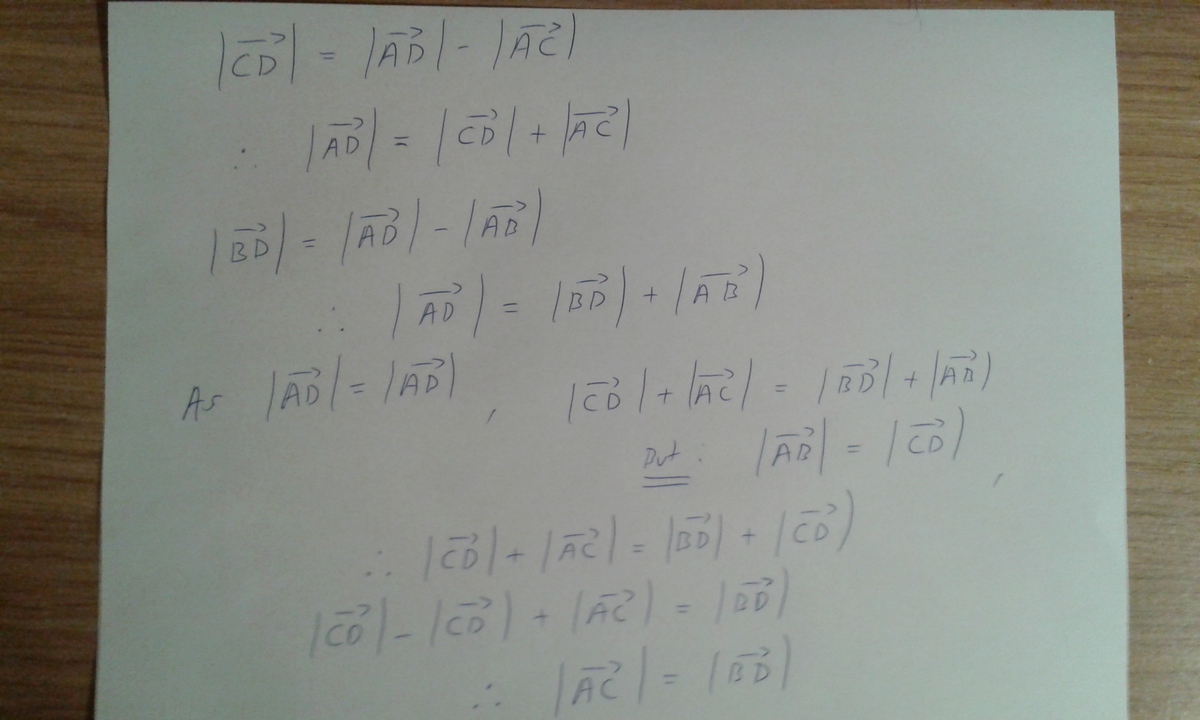 |$\overrightarrow{CD}$| = |$\overrightarrow{AD}$| - |$\overrightarrow{AC}$|
∴ |$\overrightarrow{AD}$| = |$\overrightarrow{CD}$| + |$\overrightarrow{AC}$|
|$\overrightarrow{BD}$| = |$\overrightarrow{AD}$| - |$\overrightarrow{AB}$|
∴ |$\overrightarrow{AD}$| = |$\overrightarrow{BD}$| + |$\overrightarrow{AB}$|
As |$\overrightarrow{AD}$| = |$\overrightarrow{AD}$| , |$\overrightarrow{CD}$| + |$\overrightarrow{AC}$| = |$\overrightarrow{BD}$| + |$\overrightarrow{AB}$|
But : |$\overrightarrow{AB}$| = |$\overrightarrow{CD}$| ,
∴ |$\overrightarrow{CD}$| + |$\overrightarrow{AC}$| = |$\overrightarrow{BD}$| + |$\overrightarrow{CD}$|
|$\overrightarrow{CD}$| - |$\overrightarrow{CD}$| + |$\overrightarrow{AC}$| = |$\overrightarrow{BD}$|
∴ |$\overrightarrow{AC}$| = |$\overrightarrow{BD}$|